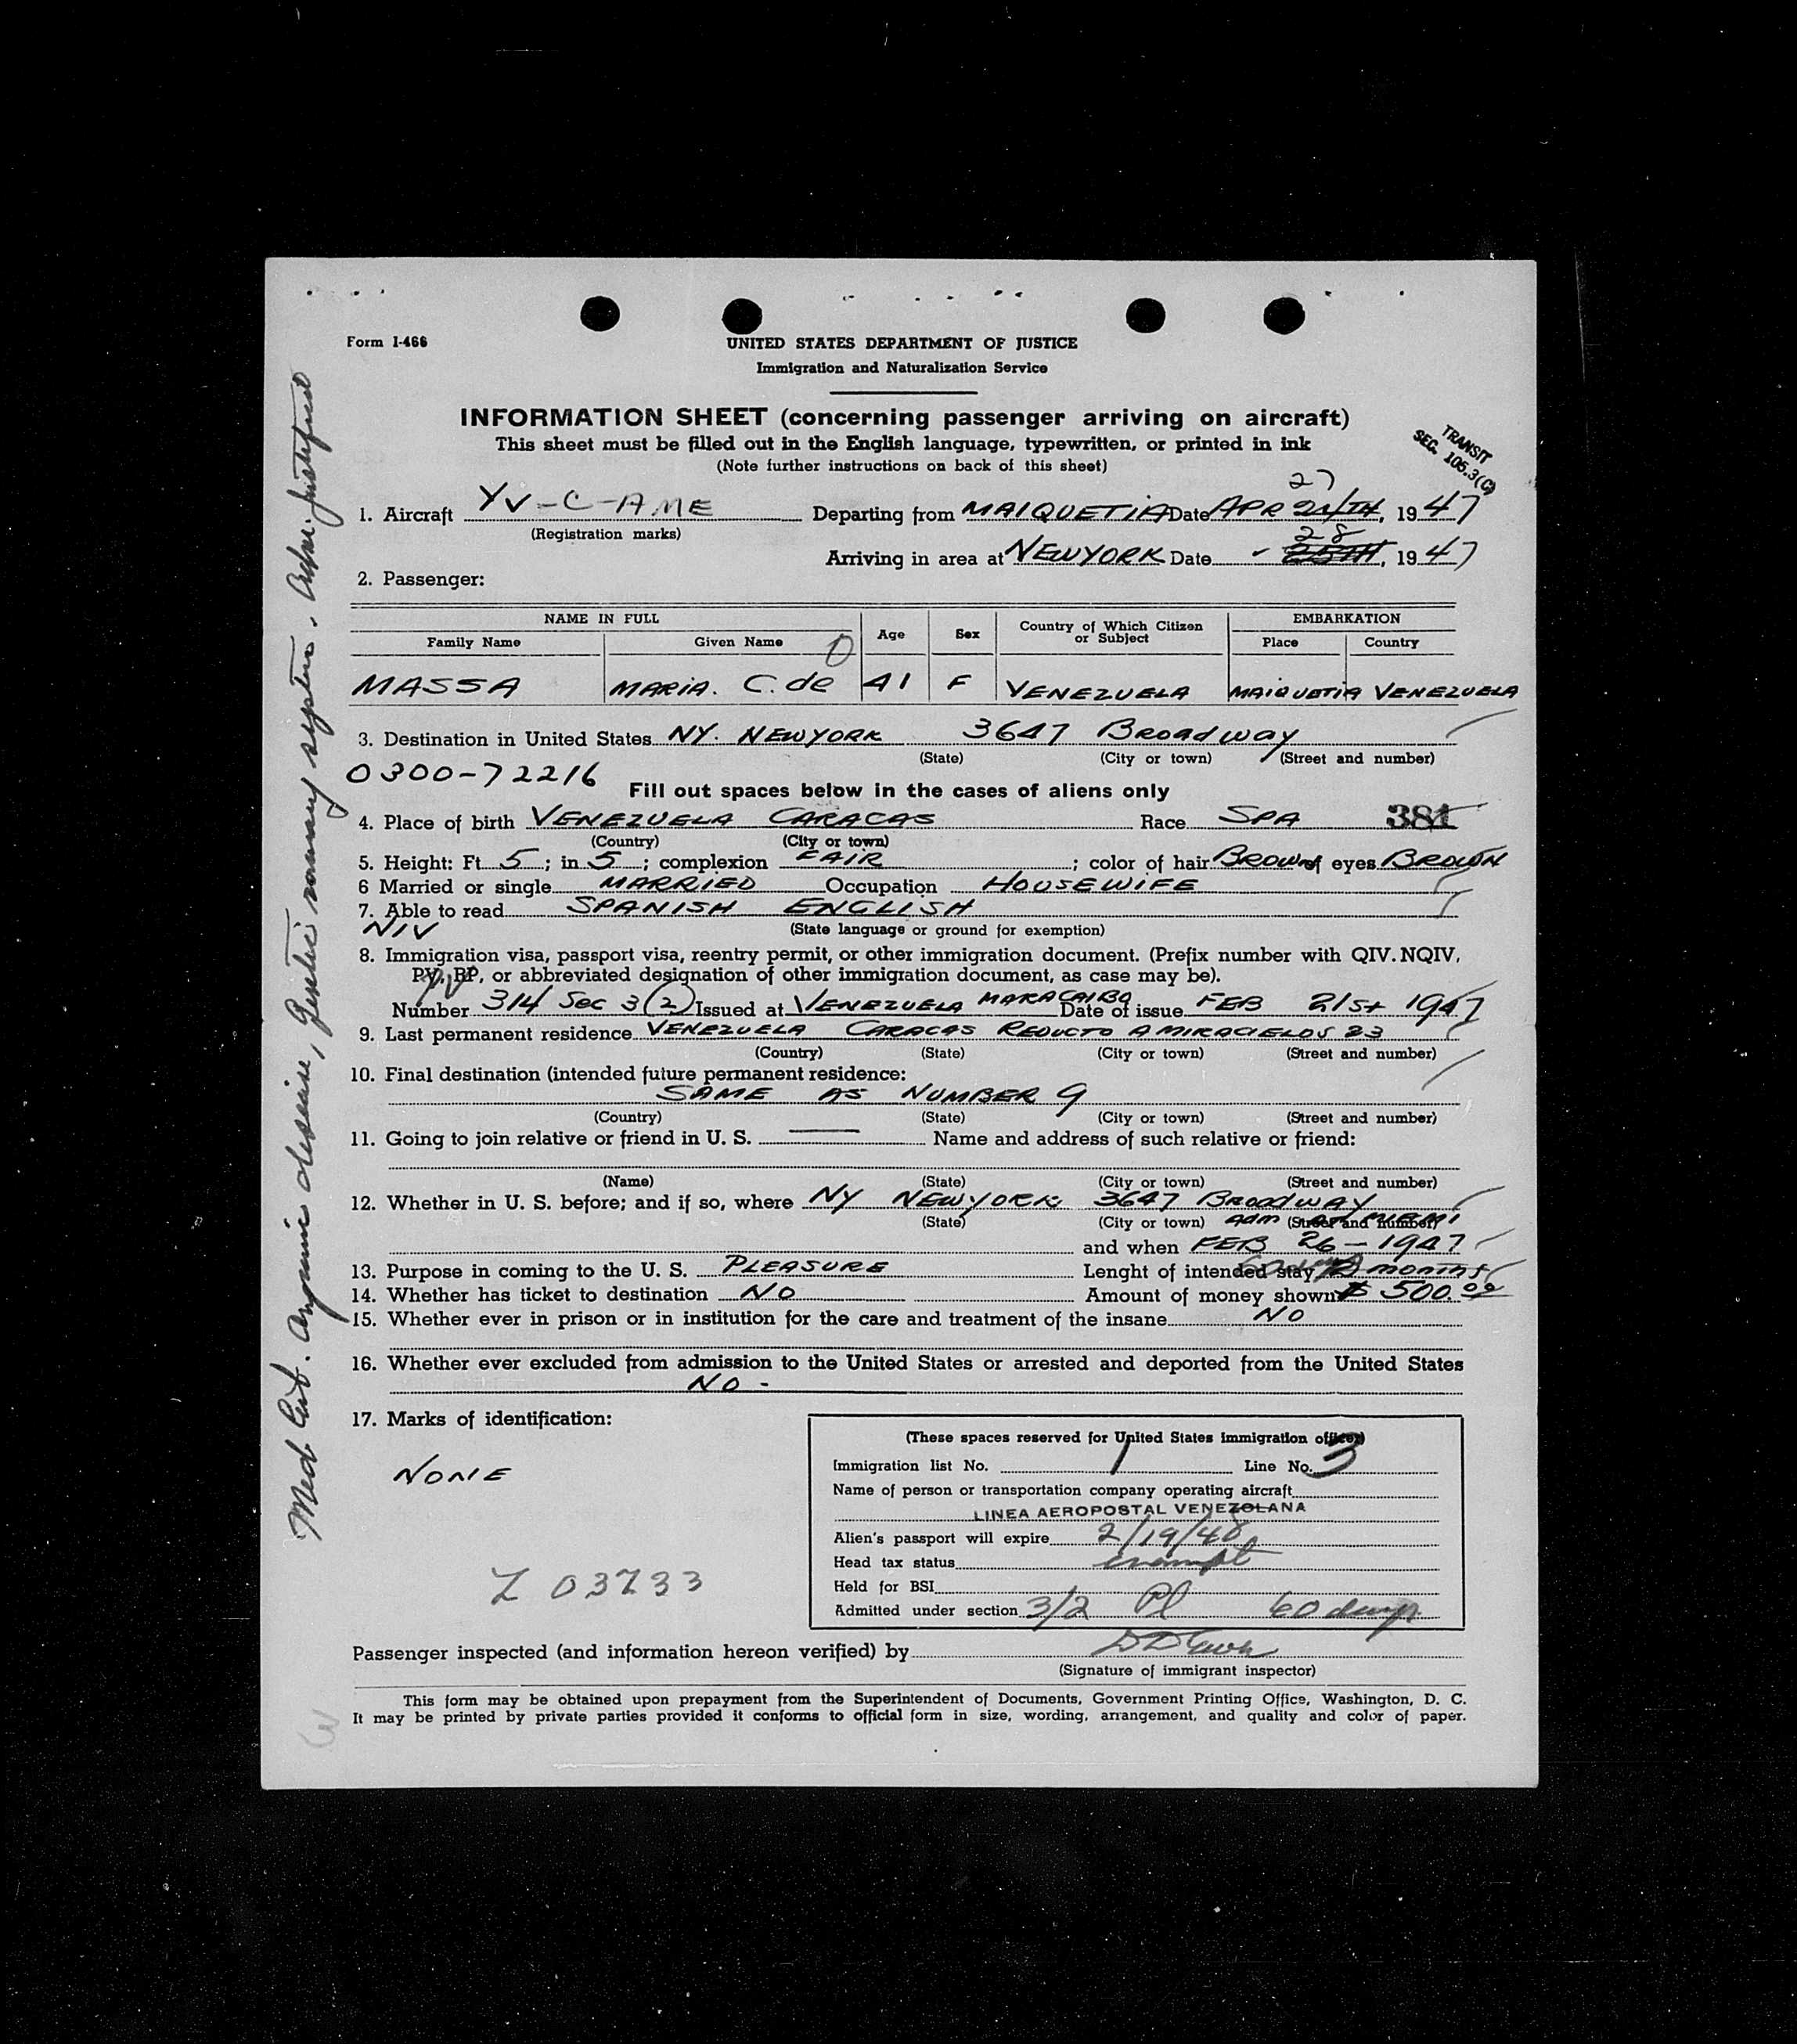 Form I-466
UNITED STATES DEPARTMENT OF JUSTICE
Immigration and Naturalization Service
INFORMATION SHEET (concerning passenger arriving on aircraft)
This sheet must be filled out in the English language, typewritten, or printed in ink
(Note further instructions on back of this sheet)
TRANSIT
SEC. 105.3(C)
27
1. Aircraft YV-C-AME Departing from MAIQUETIA Date APR 24TH, 1947
(Registration marks)
28
Arriving in area at NEWYORK Date 25TH, 1947
2. Passenger:
NAME IN FULL Age Sex Country of Which Citizen or Subject EMBARKATION
Family Name Given Name Place Country
MASSA MARIA. C. de 41 F VENEZUELA MAIQUETIA VENEZUELA
3. Destination in United States NY. NEWYORK 3647 Broadway
(State) (City or town) (Street and number)
0300-72216
Fill out spaces below in the cases of aliens only
4. Place of birth VENEZUELA CARACAS Race SPA 381
(Country) (City or town)
5. Height: Ft 5; in 5; complexion FAIR; color of hair BROWN of eyes BROWN
6 Married or single MARRIED Occupation HOUSEWIFE
7. Able to read SPANISH ENGLISH
NIV (State language or ground for exemption)
8. Immigration visa, passport visa, reentry permit, or other immigration document. (Prefix number with QIV. NQIV,
PV, RP, or abbreviated designation of other immigration document, as case may be).
Number 314 Sec 3(2) Issued at VENEZUELA MARACAIBO Date of issue FEB 21st 1947
9. Last permanent residence VENEZUELA CARACAS REDUCTO A MIRACIELOS 23
(Country) (State) (City or town) (Street and number)
10. Final destination (intended future permanent residence:
SAME AS NUMBER 9
(Country) (State) (City or town) (Street and number)
11. Going to join relative or friend in U. S. — Name and address of such relative or friend:
(Name) (State) (City or town) (Street and number)
12. Whether in U. S. before; and if so, where NY NEWYORK 3647 BROADWAY
(State) (City or town) (Street and number) adm at MIAMI
and when FEB 26-1947
13. Purpose in coming to the U. S. PLEASURE Lenght of intended stay 60 days 2 months
14. Whether has ticket to destination NO Amount of money shown $ 500.00
15. Whether ever in prison or in institution for the care and treatment of the insane NO
16. Whether ever excluded from admission to the United States or arrested and deported from the United States
NO -
17. Marks of identification:
NONE
Z 03733
(These spaces reserved for United States immigration officer)
Immigration list No. 1 Line No. 3
Name of person or transportation company operating aircraft
LINEA AEROPOSTAL VENEZOLANA
Alien's passport will expire 2/19/48
Head tax status exempt
Held for BSI
Admitted under section 3/2 Pl 60 days
Passenger inspected (and information hereon verified) by
(Signature of immigrant inspector)
This form may be obtained upon prepayment from the Superintendent of Documents, Government Printing Office, Washington, D. C.
It may be printed by private parties provided it conforms to official form in size, wording, arrangement, and quality and color of paper.
Med Cert.